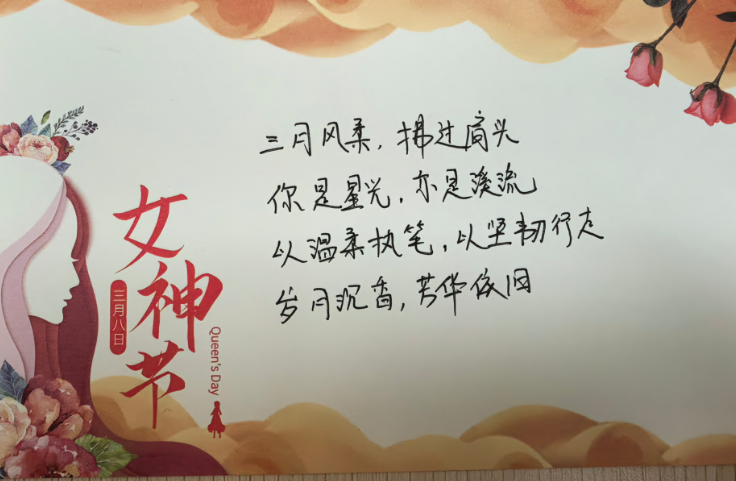 三月风柔，拂过肩头
你是星光，亦是溪流
以温柔执笔，以坚韧行走
岁月沉香，芳华依旧
女神节
三月八日
Queen's Day